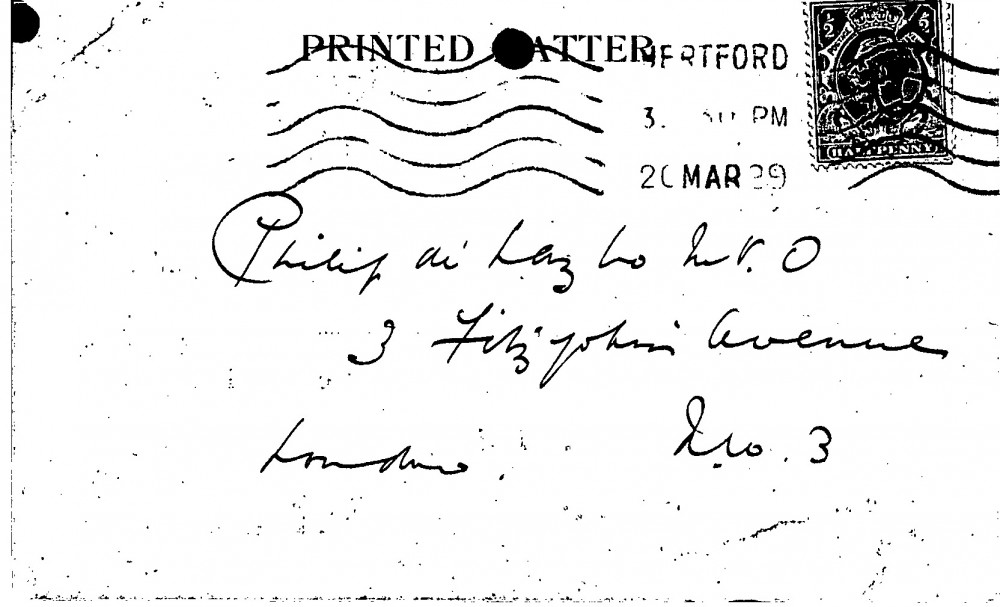 PRINTED MATTER
HERTFORD
PM
MAR
HALFPENNY
Philip de Laszlo M.V.O
3 Fitzjohns Avenue
London. N.W. 3